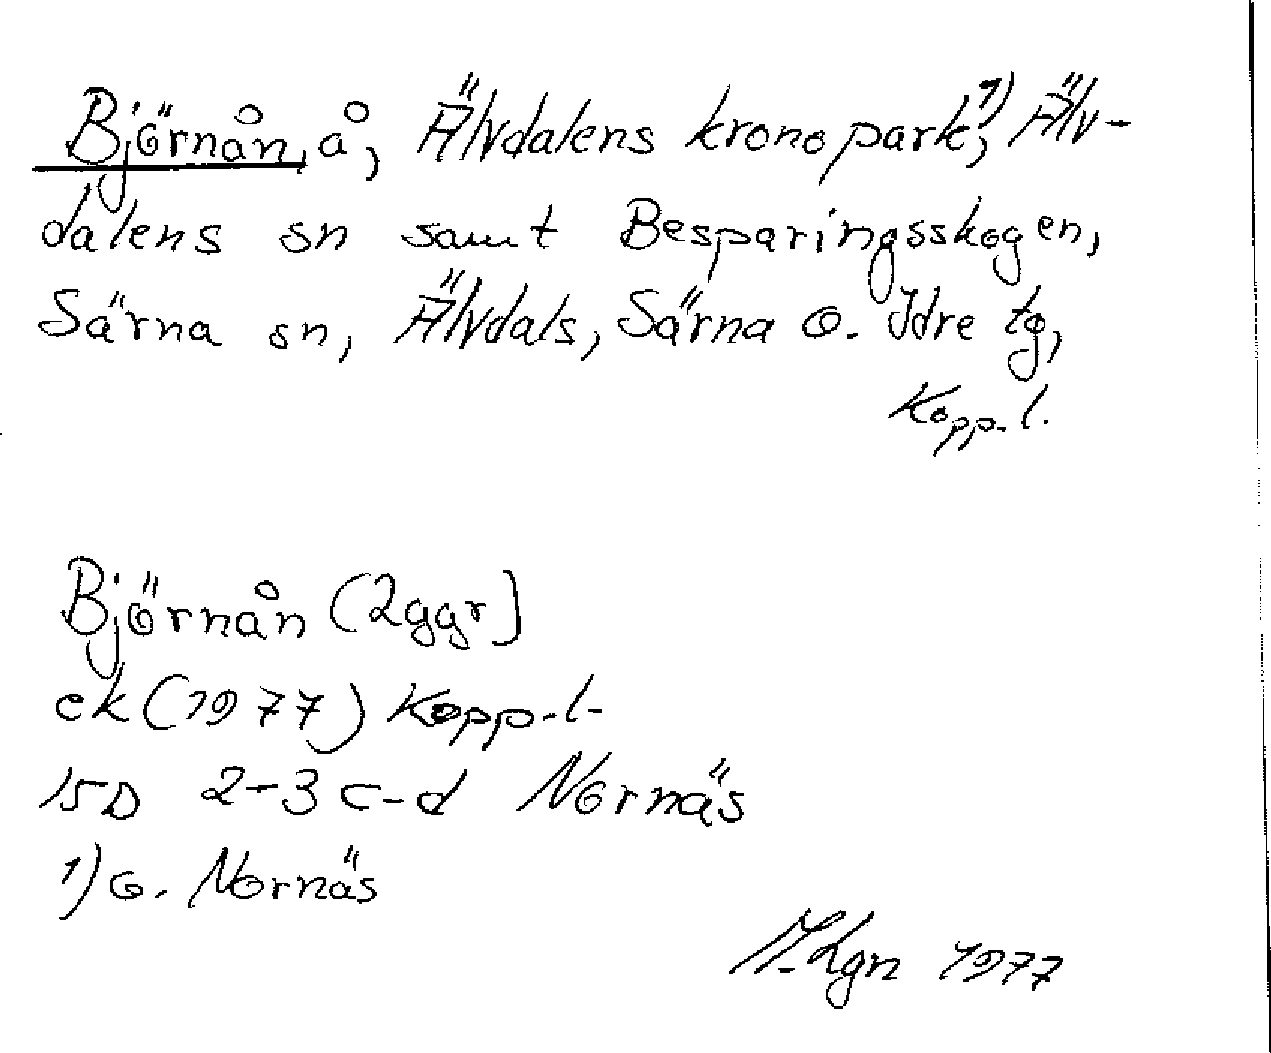 Björnån, å, Älvdalens kronopark,1) Älv-
dalens sn samt Besparingsskogen,
Särna sn, Älvdals, Särna o. Idre tg,
Kopp. l.
Björnån (2ggr)
ek (1977) Kopp. l.
15D 2-3 c-d Nornäs
1) o. Nornäs
1977